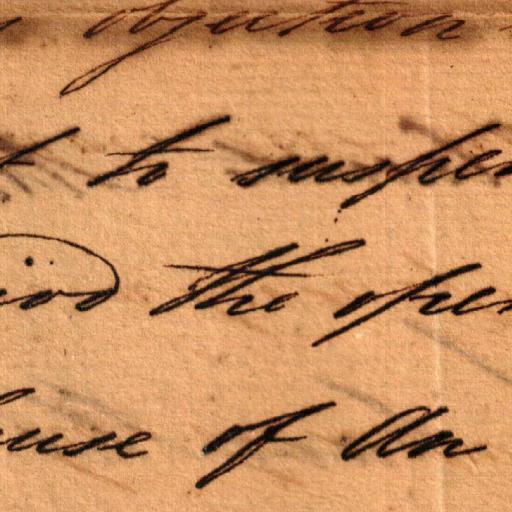 objection
to suspen
iod the open
ause of An